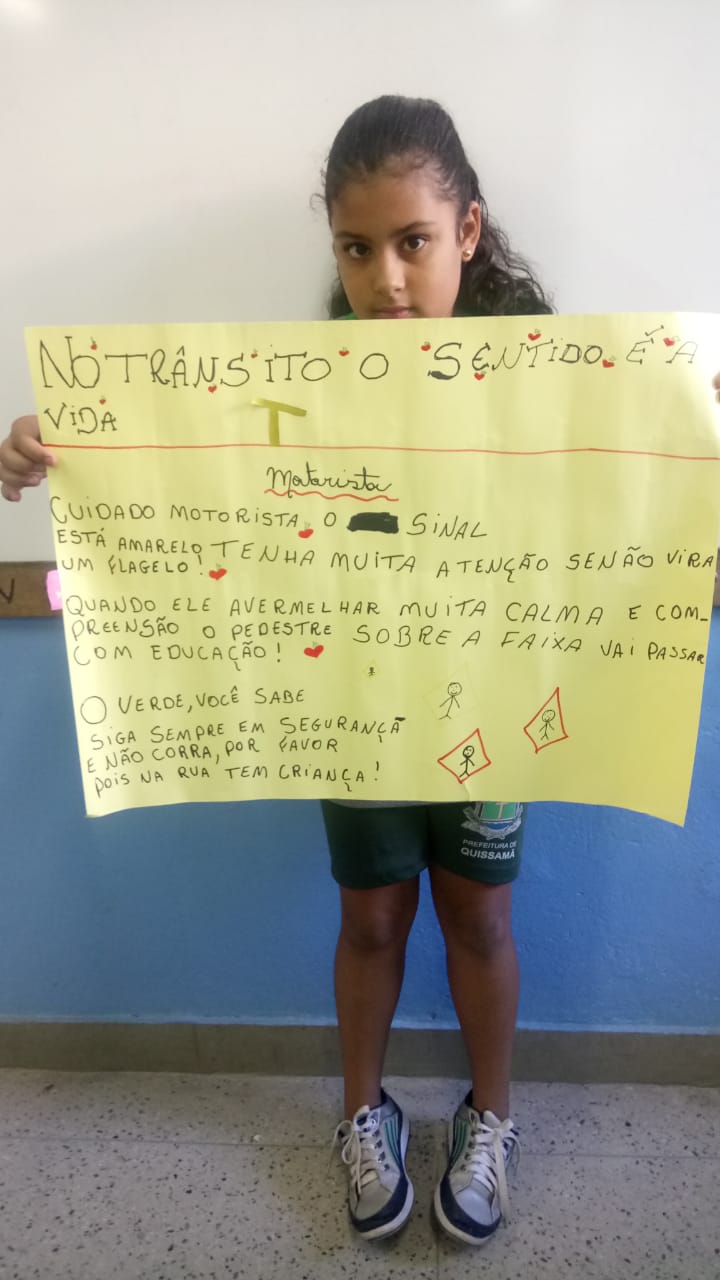 NO TRÂNSITO O SENTIDO É A
VIDA
T
Motorista
CUIDADO MOTORISTA, O SINAL
ESTÁ AMARELO, TENHA MUITA ATENÇÃO SENÃO VIRA
UM FLAGELO!
QUANDO ELE AVERMELHAR MUITA CALMA E COM-
PREENSÃO O PEDESTRE SOBRE A FAIXA VAI PASSAR
COM EDUCAÇÃO!
O VERDE, VOCÊ SABE
SIGA SEMPRE EM SEGURANÇA
E NÃO CORRA, POR FAVOR
POIS NA RUA TEM CRIANÇA!
PREFEITURA DE
QUISSAMÃ